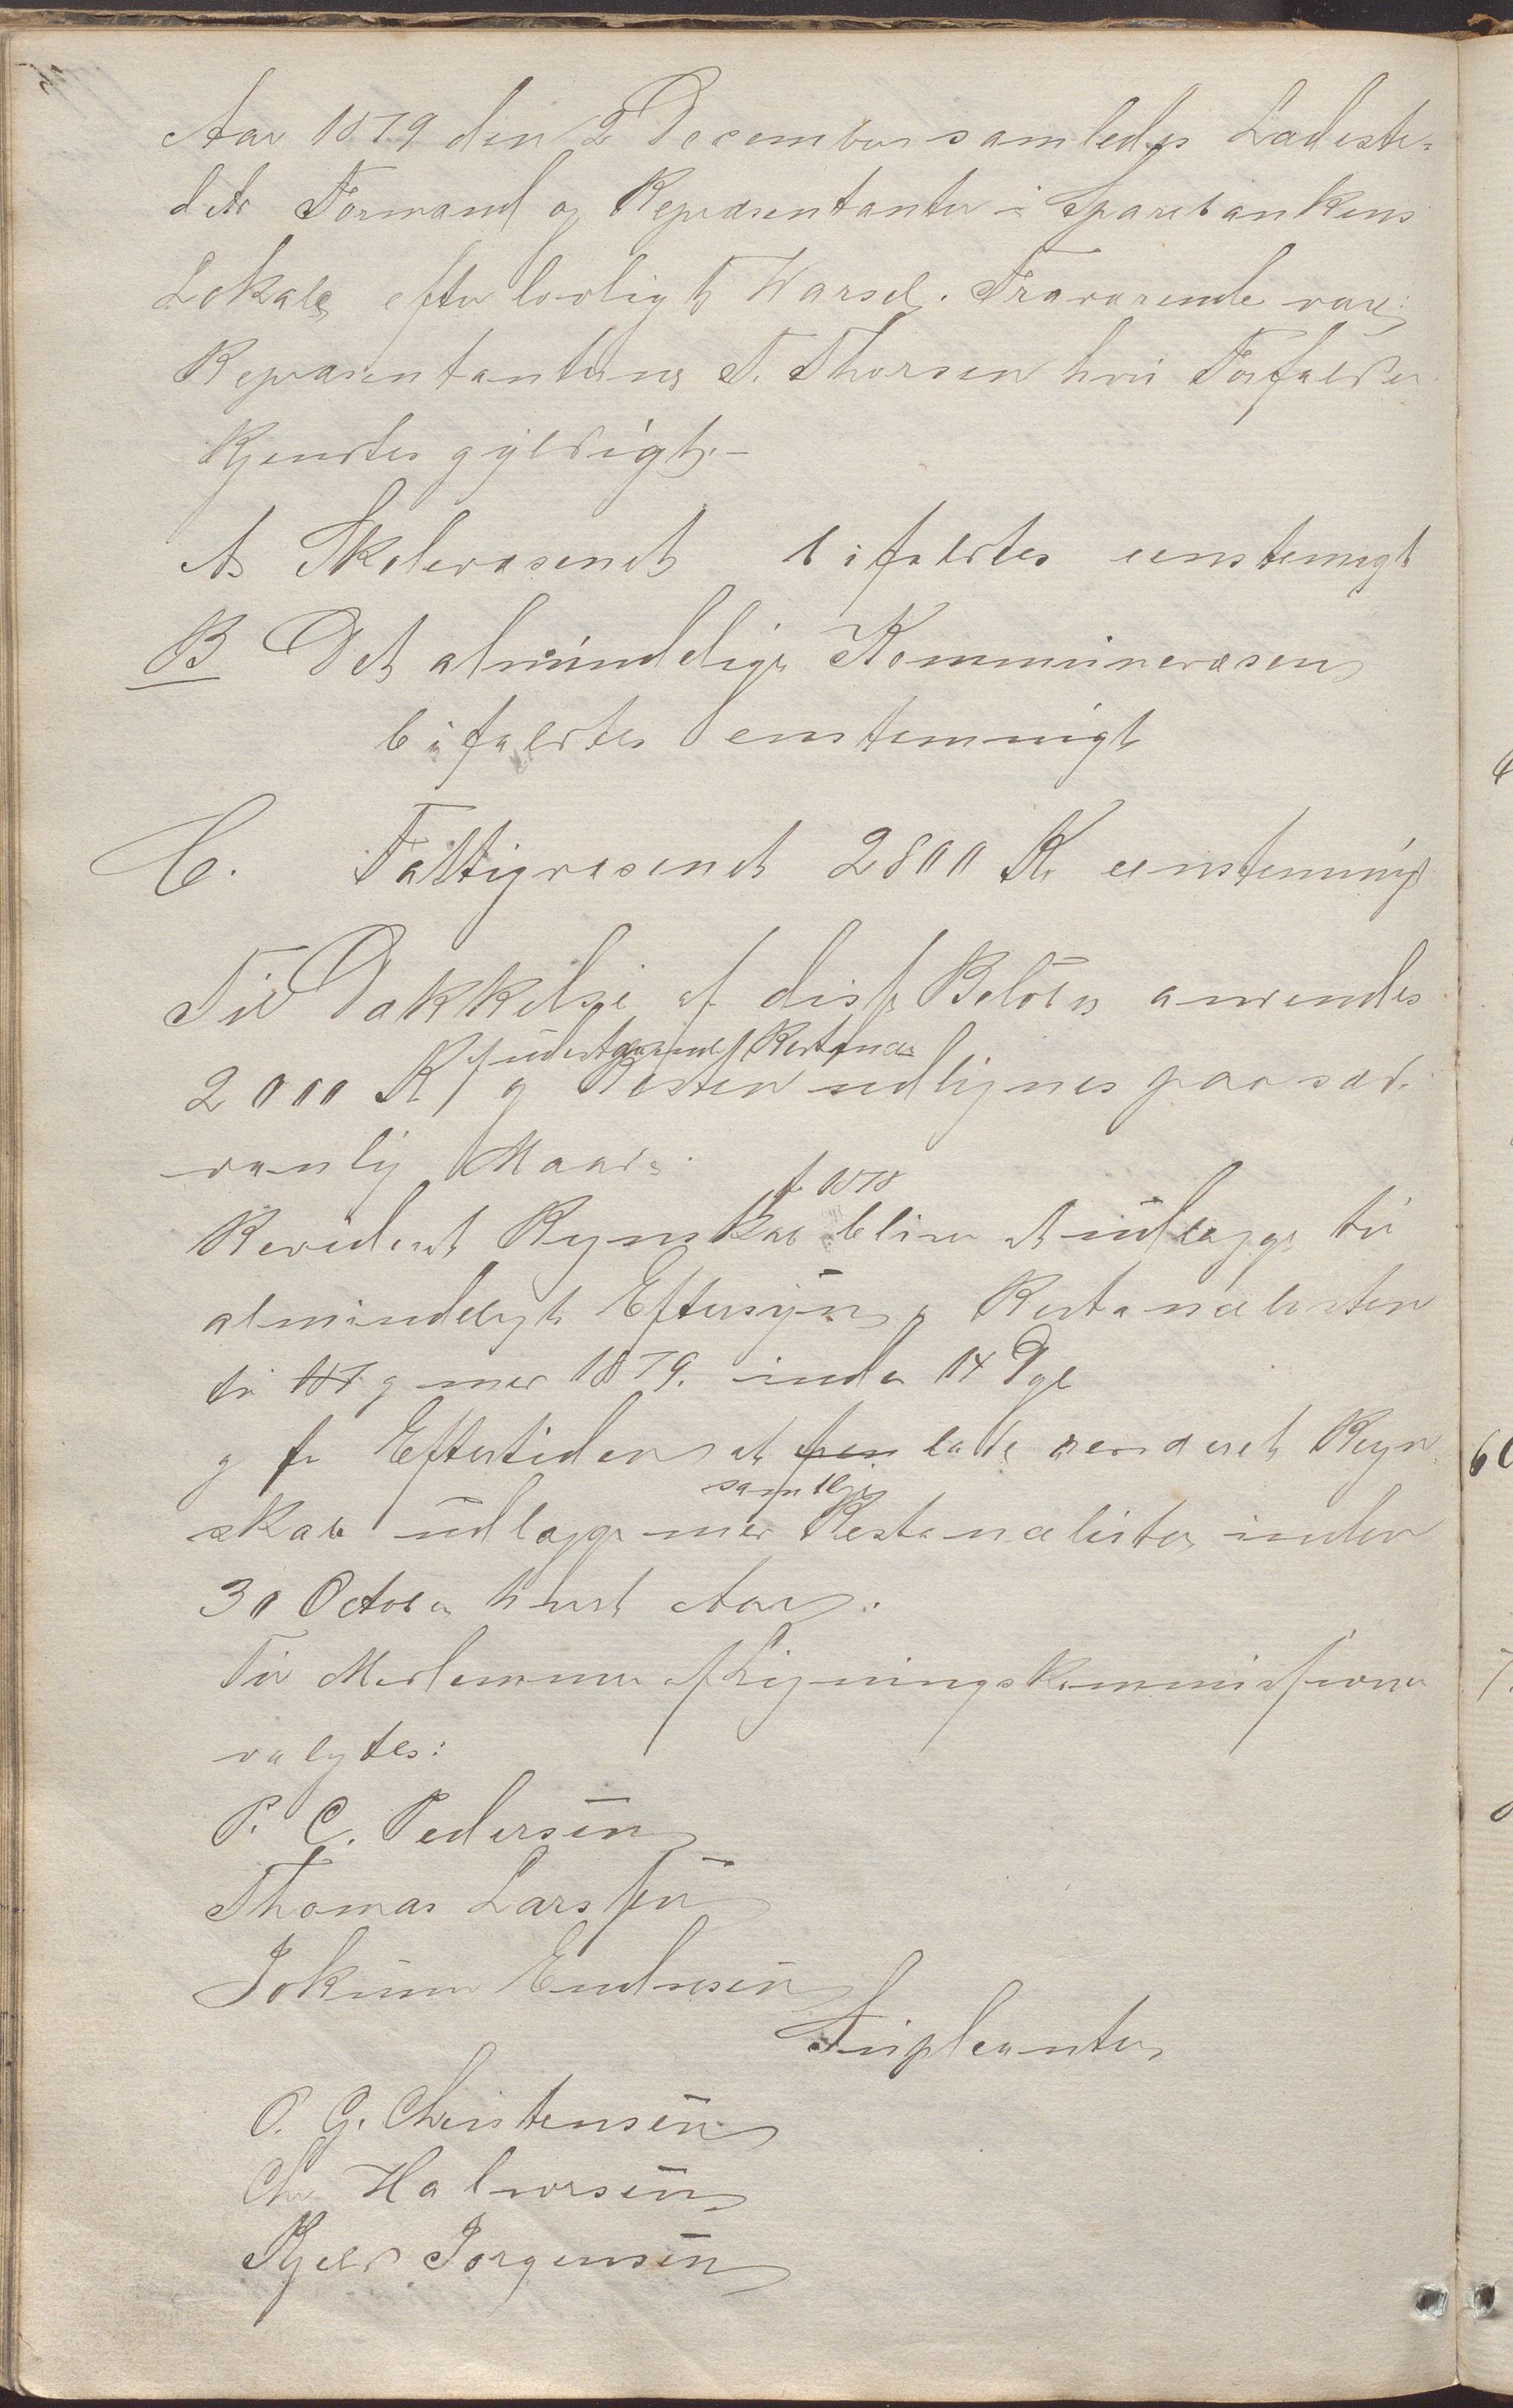 Aar 1879 den 2 December samledes Ladeste=
dets Formand og Repræsentanter i Sparebankens
Lokale efter lovligt Varsel. Fraværende var
Repræsentanterne T. Thorsen hvis Forfald er
kjendtes gyldigt.-
A Skolevæsenet bifaldtes eenstemigt
B Det almindelige Kommunevæsen
bifaldtes eenstemmigt
C. Fattigvæsenet 2800 Kr eenstemmigt
Til Dækkelse af disse Beløb anvendes
af udestaaende Restancer
2000 Kr og Resten udlignes paa sæd=
vanlig Maade.
f 1878
Revideret Regnskab bliver at udlægge til
almindeligt Eftersyn og Restancelisten
til 187 og med 1879. inden 14 Dge
og for Eftertiden at frem lade revideret Regn
samtlige
skab udlægge med Restancelister inden
30 October hvert Aar.
Til Medlemmer af Ligningskommissionen
valgtes:
P. C. Pedersen
Thomas Larssen
Jokum Endresen
Supleanter
O. G. Christensen
Chr Halvorsen
Kjeld Jørgensen